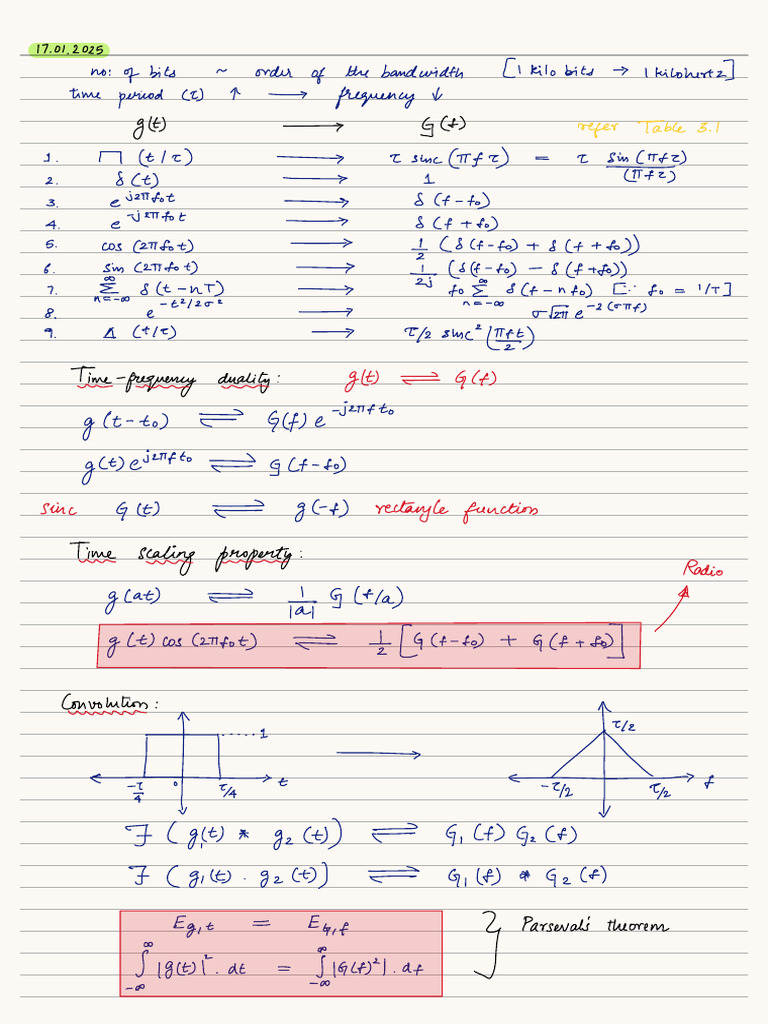 17.01.2025
no: of bits ~ order of the bandwidth [1 kilo bits → 1 kilohertz]
time period (τ) ↑ → frequency ↓
g(t) → G(f) refer Table 3.1
1. ⊓ (t/τ) → τ sinc(πfτ) = τ sin(πfτ)/(πfτ)
2. δ(t) → 1
3. e^{j2πf₀t} → δ(f-f₀)
4. e^{-j2πf₀t} → δ(f+f₀)
5. cos(2πf₀t) → 1/2 (δ(f-f₀) + δ(f+f₀))
6. sin(2πf₀t) → 1/2j (δ(f-f₀) - δ(f+f₀))
7. ∑_{n=-∞}^{∞} δ(t-nT) → f₀ ∑_{n=-∞}^{∞} δ(f-nf₀) [∵ f₀ = 1/T]
8. e^{-t²/2σ²} → σ√2π e^{-2(σπf)}
9. Δ (t/τ) → τ/2 sinc² (πft/2)
Time-frequency duality: g(t) ⇌ G(f)
g(t-t₀) ⇌ G(f) e^{-j2πft₀}
g(t) e^{j2πft₀} ⇌ G(f-f₀)
sinc G(t) ⇌ g(-f) rectangle function
Time scaling property:
Radio
g(at) ⇌ 1/|a| G(f/a)
g(t) cos(2πf₀t) ⇌ 1/2 [G(f-f₀) + G(f+f₀)]
Convolution:
1 τ/2
-τ/4 0 τ/4 t -τ/2 τ/2 f
F (g₁(t) * g₂(t)) ⇌ G₁(f) G₂(f)
F (g₁(t) . g₂(t)) ⇌ G₁(f) * G₂(f)
E_{g,t} = E_{G,f} } Parseval's theorem
∫_{-∞}^{∞} |g(t)|² . dt = ∫_{-∞}^{∞} |G(f)²| . df